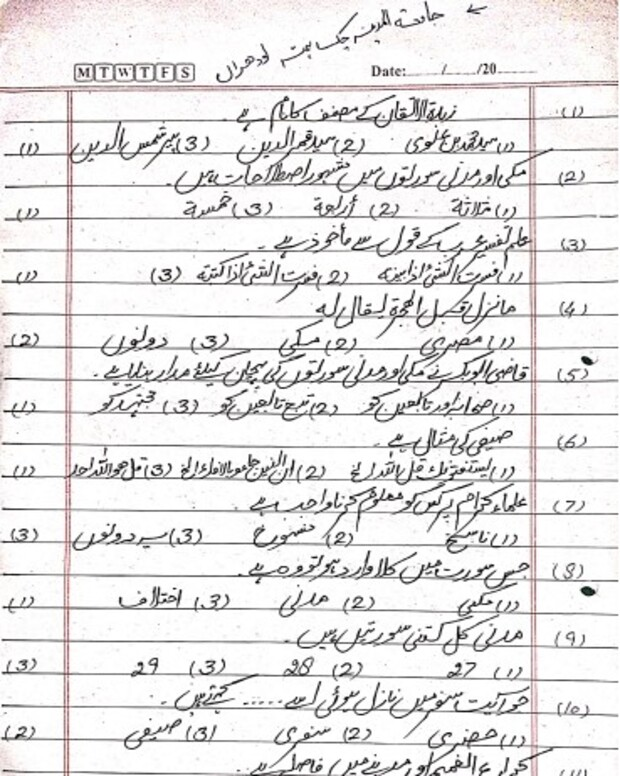 ← جامعۃ المدینہ چک ہمتہ لودھراں
M T W T F S Date: ___/___/20___
(1) زبدۃ الاتقان کے مصنف کا نام ہے۔
(1) سید محمد بن علوی (2) سید قمر الدین (3) پیر شمس الدین (1)
(2) مکی اور مدنی سورتوں میں مشہور اصطلاحات ہیں۔
(1) ثلاثة (2) أربعة (3) خمسة (1)
(3) علم تفسیر عرب کے قول سے مأخوذ ہے۔
(1) فسرت الشئ اذا بینته (2) فسرت الشئ اذا کتبته (3) (1)
(4) مانزل قبل الهجرة یقال له
(1) مصری (2) مکی (3) دونوں (2)
(5) قاضی ابوبکر نے مکی اور مدنی سورتوں کی پہچان کیلئے مدار بنایا ہے۔
(1) صحابہ اور تابعین کو (2) تبع تابعین کو (3) مجتہد کو (1)
(6) صیفی کی مثال ہے۔
(1) یستفتونك قل الله الخ (2) ان الذین جاءو بالافك الخ (3) قل هو الله احد (1)
(7) علماء کرام پر کس کو معلوم کرنا واجب ہے۔
(1) ناسخ (2) منسوخ (3) یہ دونوں (3)
(8) جس سورت میں کلا وارد ہو تو وہ ہے۔
(1) مکی (2) مدنی (3) اختلاف (1)
(9) مدنی کل کتنی سورتیں ہیں۔
(1) 27 (2) 28 (3) 29 (3)
(10) جو آیت سفر میں نازل ہوئی اسے ..... کہتے ہیں۔
(1) حضری (2) سفری (3) صیفی (2)
(11) کراع الغمیم اور مدینے میں فاصلہ ہے۔